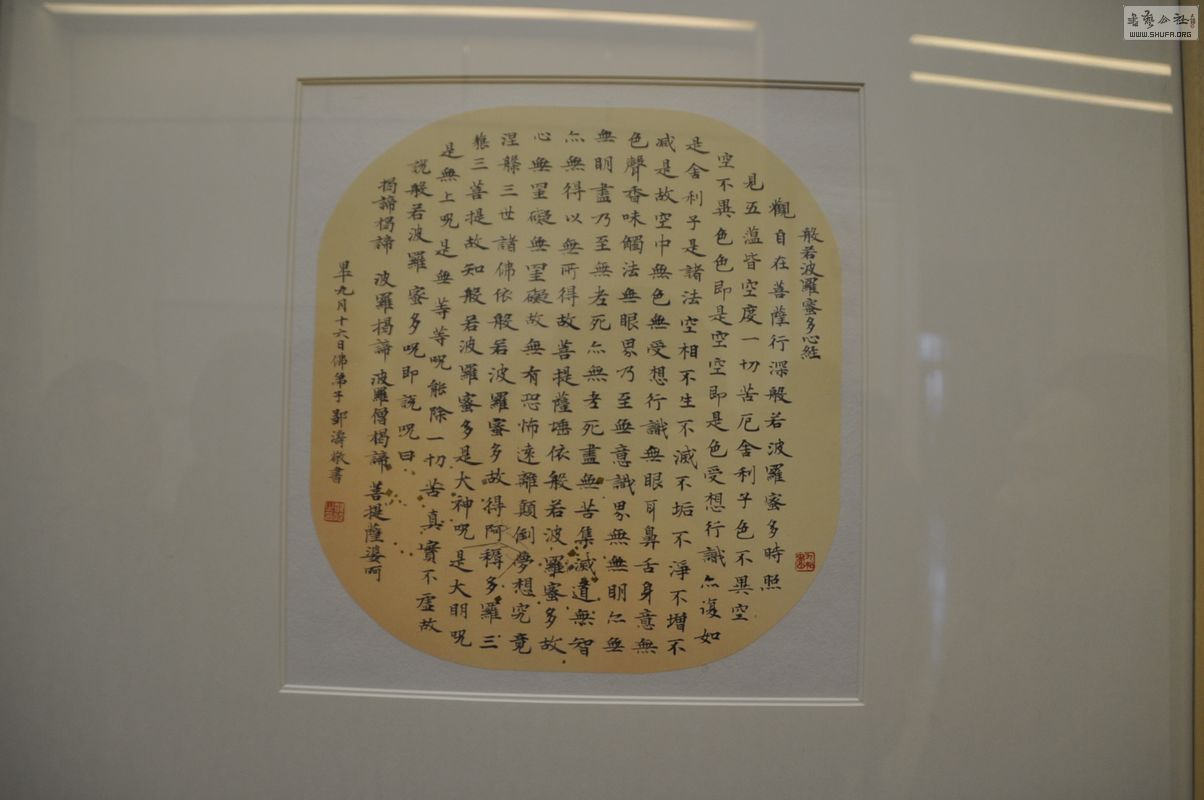 般若波羅蜜多心経
觀自在菩薩行深般若波羅蜜多時照
見五蘊皆空度一切苦厄舍利子色不異空
空不異色色即是空空即是色受想行識亦復如
是舍利子是諸法空相不生不滅不垢不淨不增不
減是故空中無色無受想行識無眼耳鼻舌身意無
色聲香味觸法無眼界乃至無意識界無無明亦無
無明盡乃至無老死亦無老死盡無苦集滅道無智
亦無得以無所得故菩提薩埵依般若波羅蜜多故
心無罣礙無罣礙故無有恐怖遠離顛倒夢想究竟
涅槃三世諸佛依般若波羅蜜多故得阿耨多羅三
藐三菩提故知般若波羅蜜多是大神咒是大明咒
是無上咒是無等等咒能除一切苦真實不虛故
說般若波羅蜜多咒即說咒曰
揭諦揭諦 波羅揭諦 波羅僧揭諦 菩提薩婆呵
九月十六日佛弟子鄭濤敬書
書藝公社
WWW.SHUFA.ORG